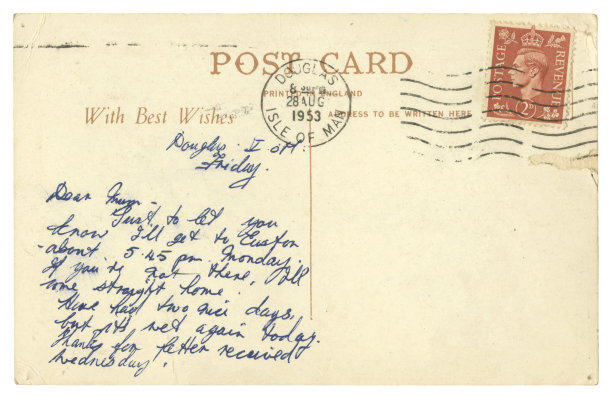 POST CARD
PRINTED IN ENGLAND
With Best Wishes
ADDRESS TO BE WRITTEN HERE
DOUGLAS
28 AUG
1953
ISLE OF MAN
POSTAGE
REVENUE
2D
Douglas. I OM.
Friday.
Dear Mum -
Just to let you
know I'll get to Euston
about 5.45 pm Monday.
If you're not there, I'll
come straight home.
Have had two nice days,
but its wet again today.
Thanks for letter received
Wednesday.